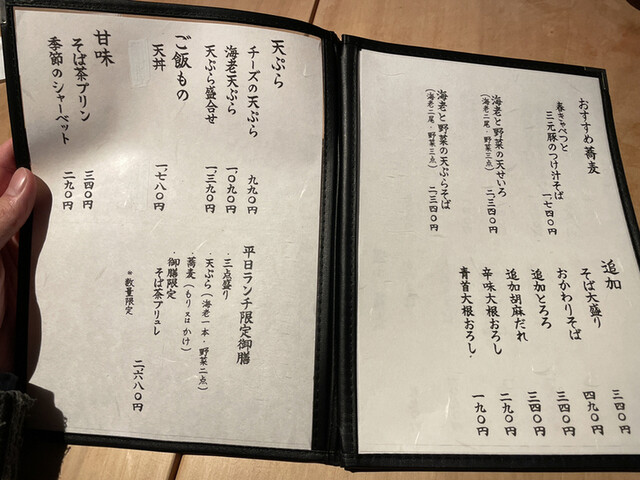 おすすめ蕎麦
春きゃべつと
三元豚のつけ汁そば
一、七四〇円
海老と野菜の天せいろ
(海老二尾・野菜三点)
二、三四〇円
海老と野菜の天ぷらそば
(海老二尾・野菜三点)
二、三四〇円
追加
そば大盛り 三四〇円
おかわりそば 四九〇円
追加とろろ 三四〇円
追加胡麻だれ 三四〇円
辛味大根おろし 二九〇円
青首大根おろし 一九〇円
天ぷら
チーズの天ぷら 九九〇円
海老天ぷら 一、〇九〇円
天ぷら盛合せ 一、三九〇円
ご飯もの
天丼 一、七八〇円
甘味
そば茶プリン 三四〇円
季節のシャーベット 二九〇円
平日ランチ限定御膳
・三点盛り
・天ぷら(海老一本・野菜二点)
・蕎麦(もり又はかけ)
・御膳限定
そば茶ブリュレ
二、六八〇円
*数量限定